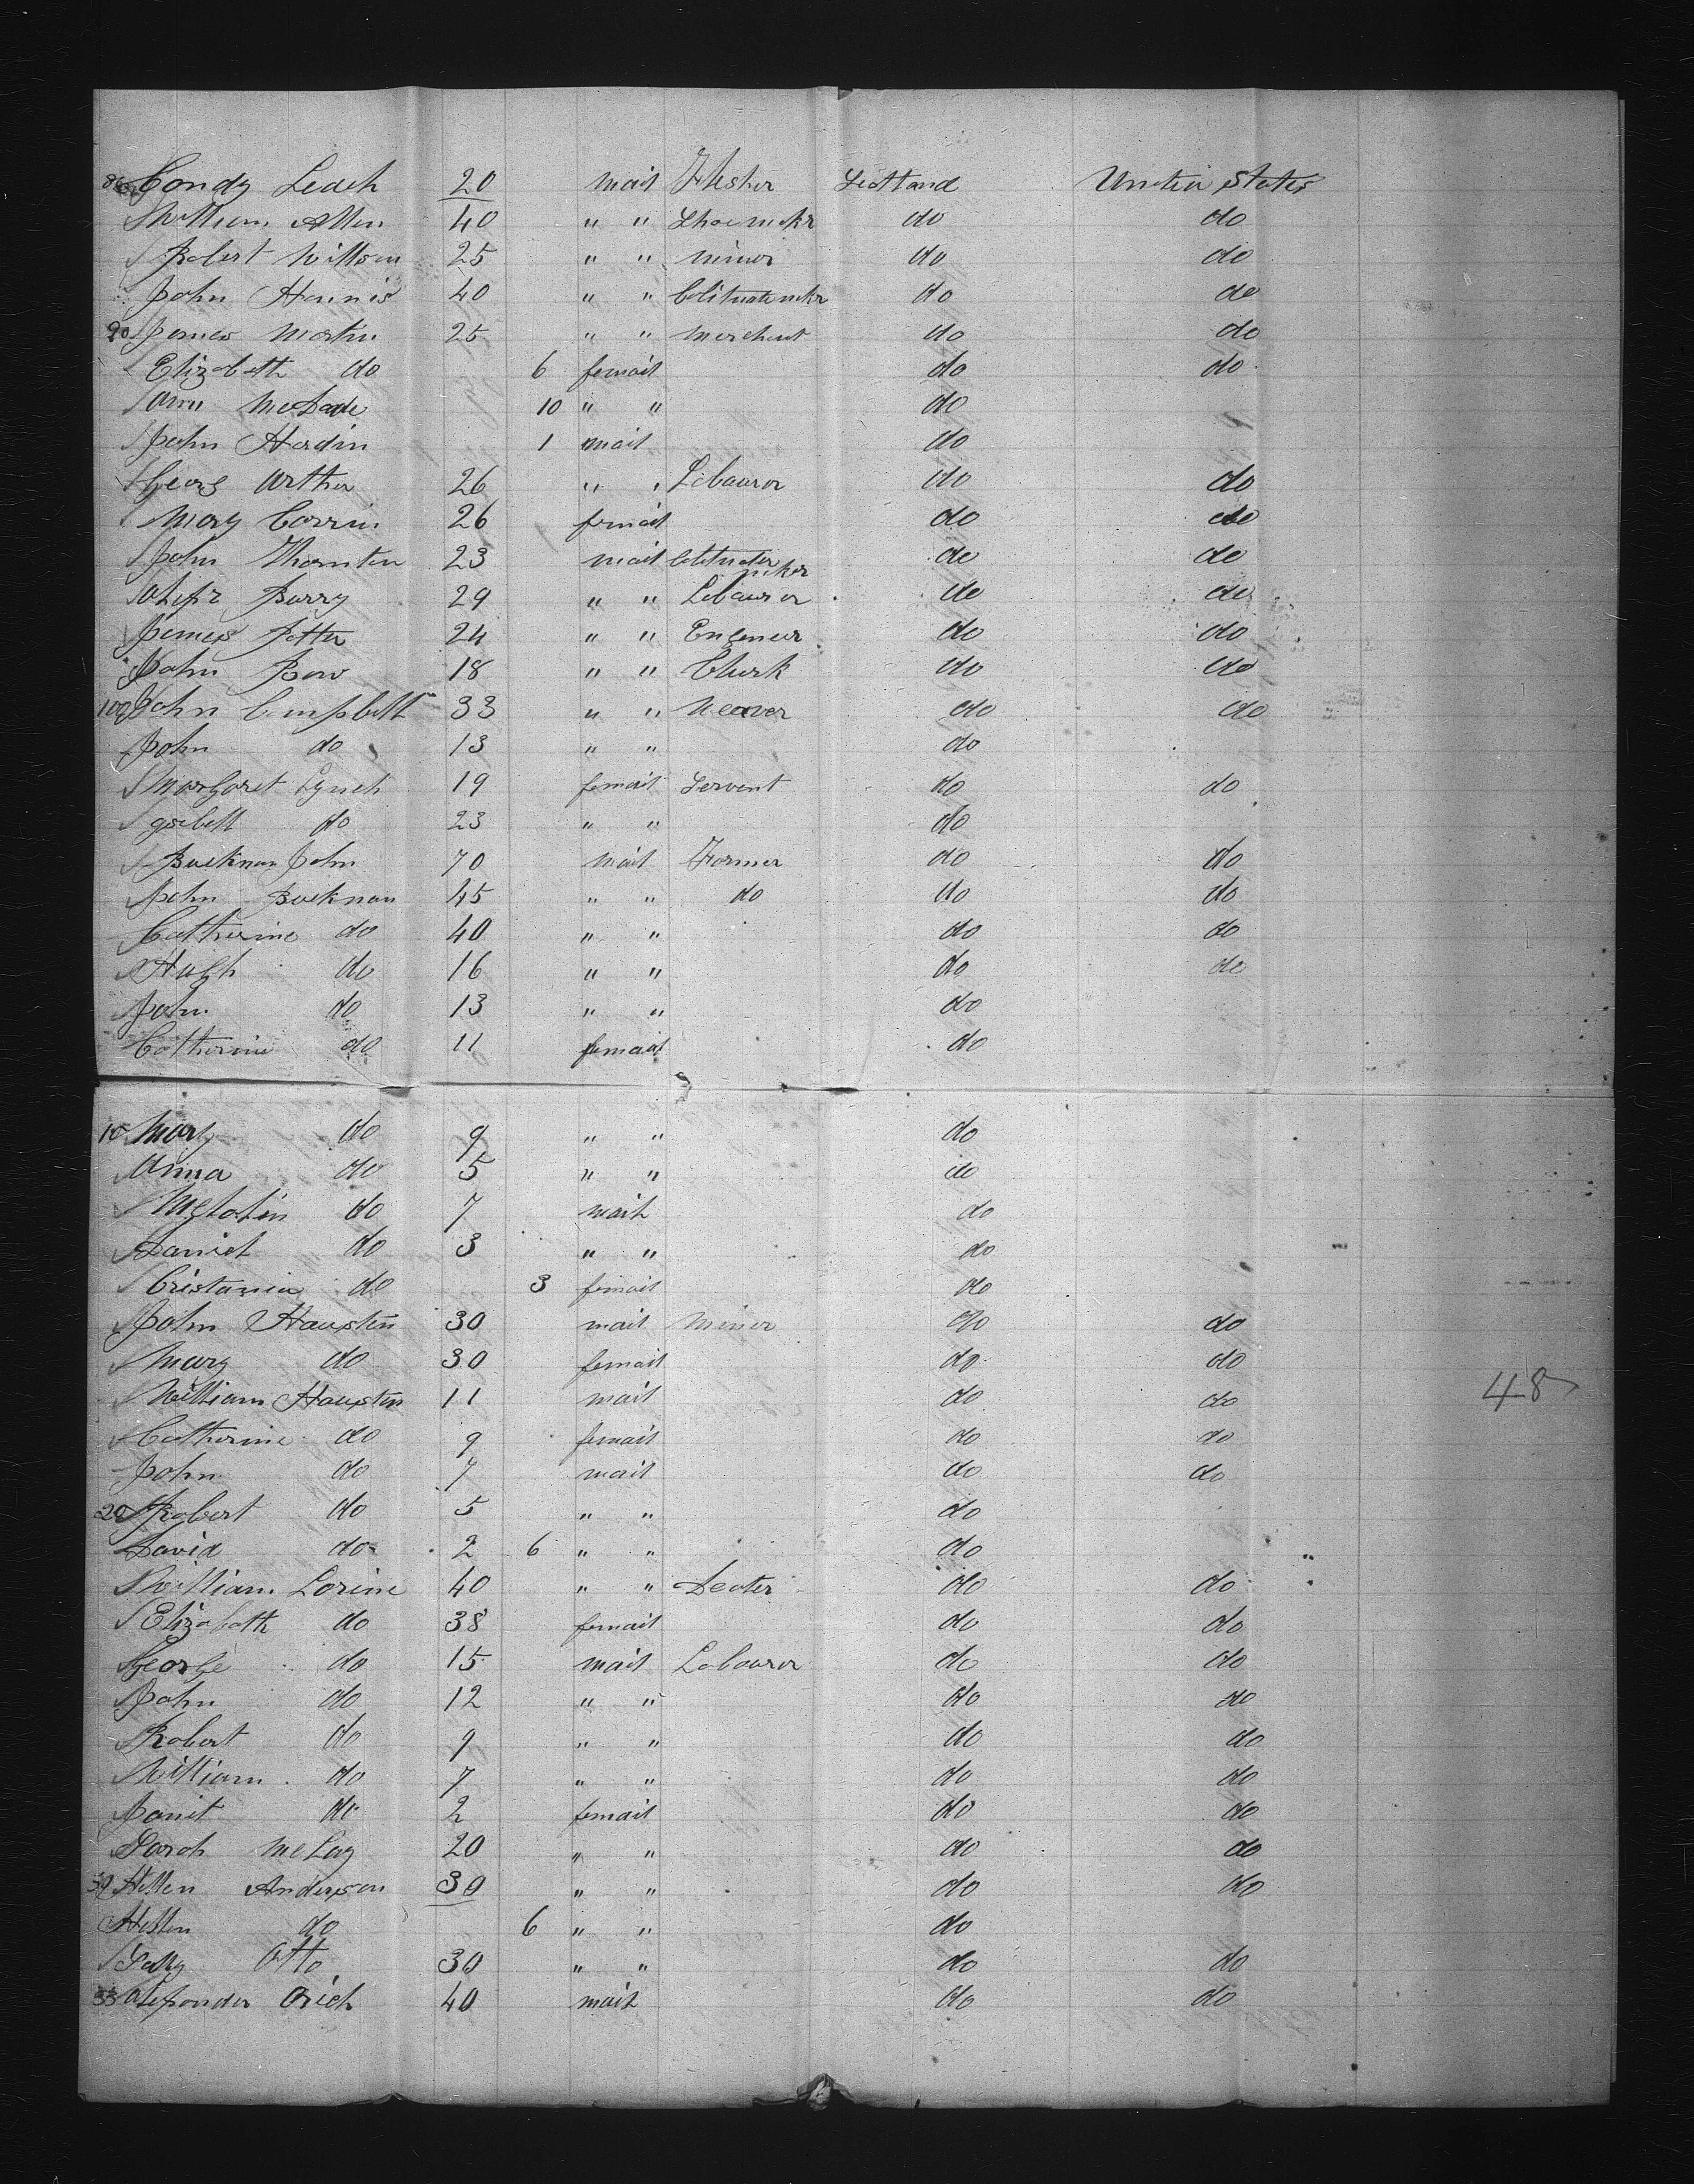 86 Condy Leach 20 mail Flesher Scotland United States
William Allen 40 " " Shoe mkr do do
Robert Willson 25 " " minor do do
John Hannis 40 " " do do
90 James Martin 25 " " merchant do do
Elizabeth do 6 femail do do
Ann McDade 10 " " do
John Hardin 1 mail do
Georg Arthur 26 " " Labouror do do
Mary Corrin 26 femail do do
John Thornton 23 mail do do
Alexr Barry 29 " " Labouror do do
James Potter 24 " " Engeneer do do
John Bow 18 " " Clurk do do
100 John Campbell 33 " " Weaver do do
John do 13 " " do
Margaret Lynch 19 femail Servent do do
Isebell do 23 " " do
Bucknan John 70 mail Farmer do do
John Bucknan 45 " " do do do
Catherine do 40 " " do do
Hugh do 16 " " do do
John do 13 " " do
Catherine do 11 femail do
10 Mary do 9 " " do
Anna do 5 " " do
do 7 mail do
Daniel do 3 " " do
Cristania do 3 femail do
John Hauston 30 mail Minor do do
Mary do 30 femail do do
William Hauston 11 mail do do 48
Catherine do 9 femail do do
John do 7 mail do do
20 Robert do 5 " " do
David do 2 6 " " do
William Lorine 40 " " Dealer do do
Elizabeth do 38 femail do do
George do 15 mail Labouror do do
John do 12 " " do do
Robert do 9 " " do do
William do 7 " " do do
Janit do 2 femail do do
Sarah McLay 20 " " do do
30 Hellen Anderson 30 " " do do
Hellen do 6 " " do
Sally Otto 30 " " do do
33 Alexander Orich 40 mail do do